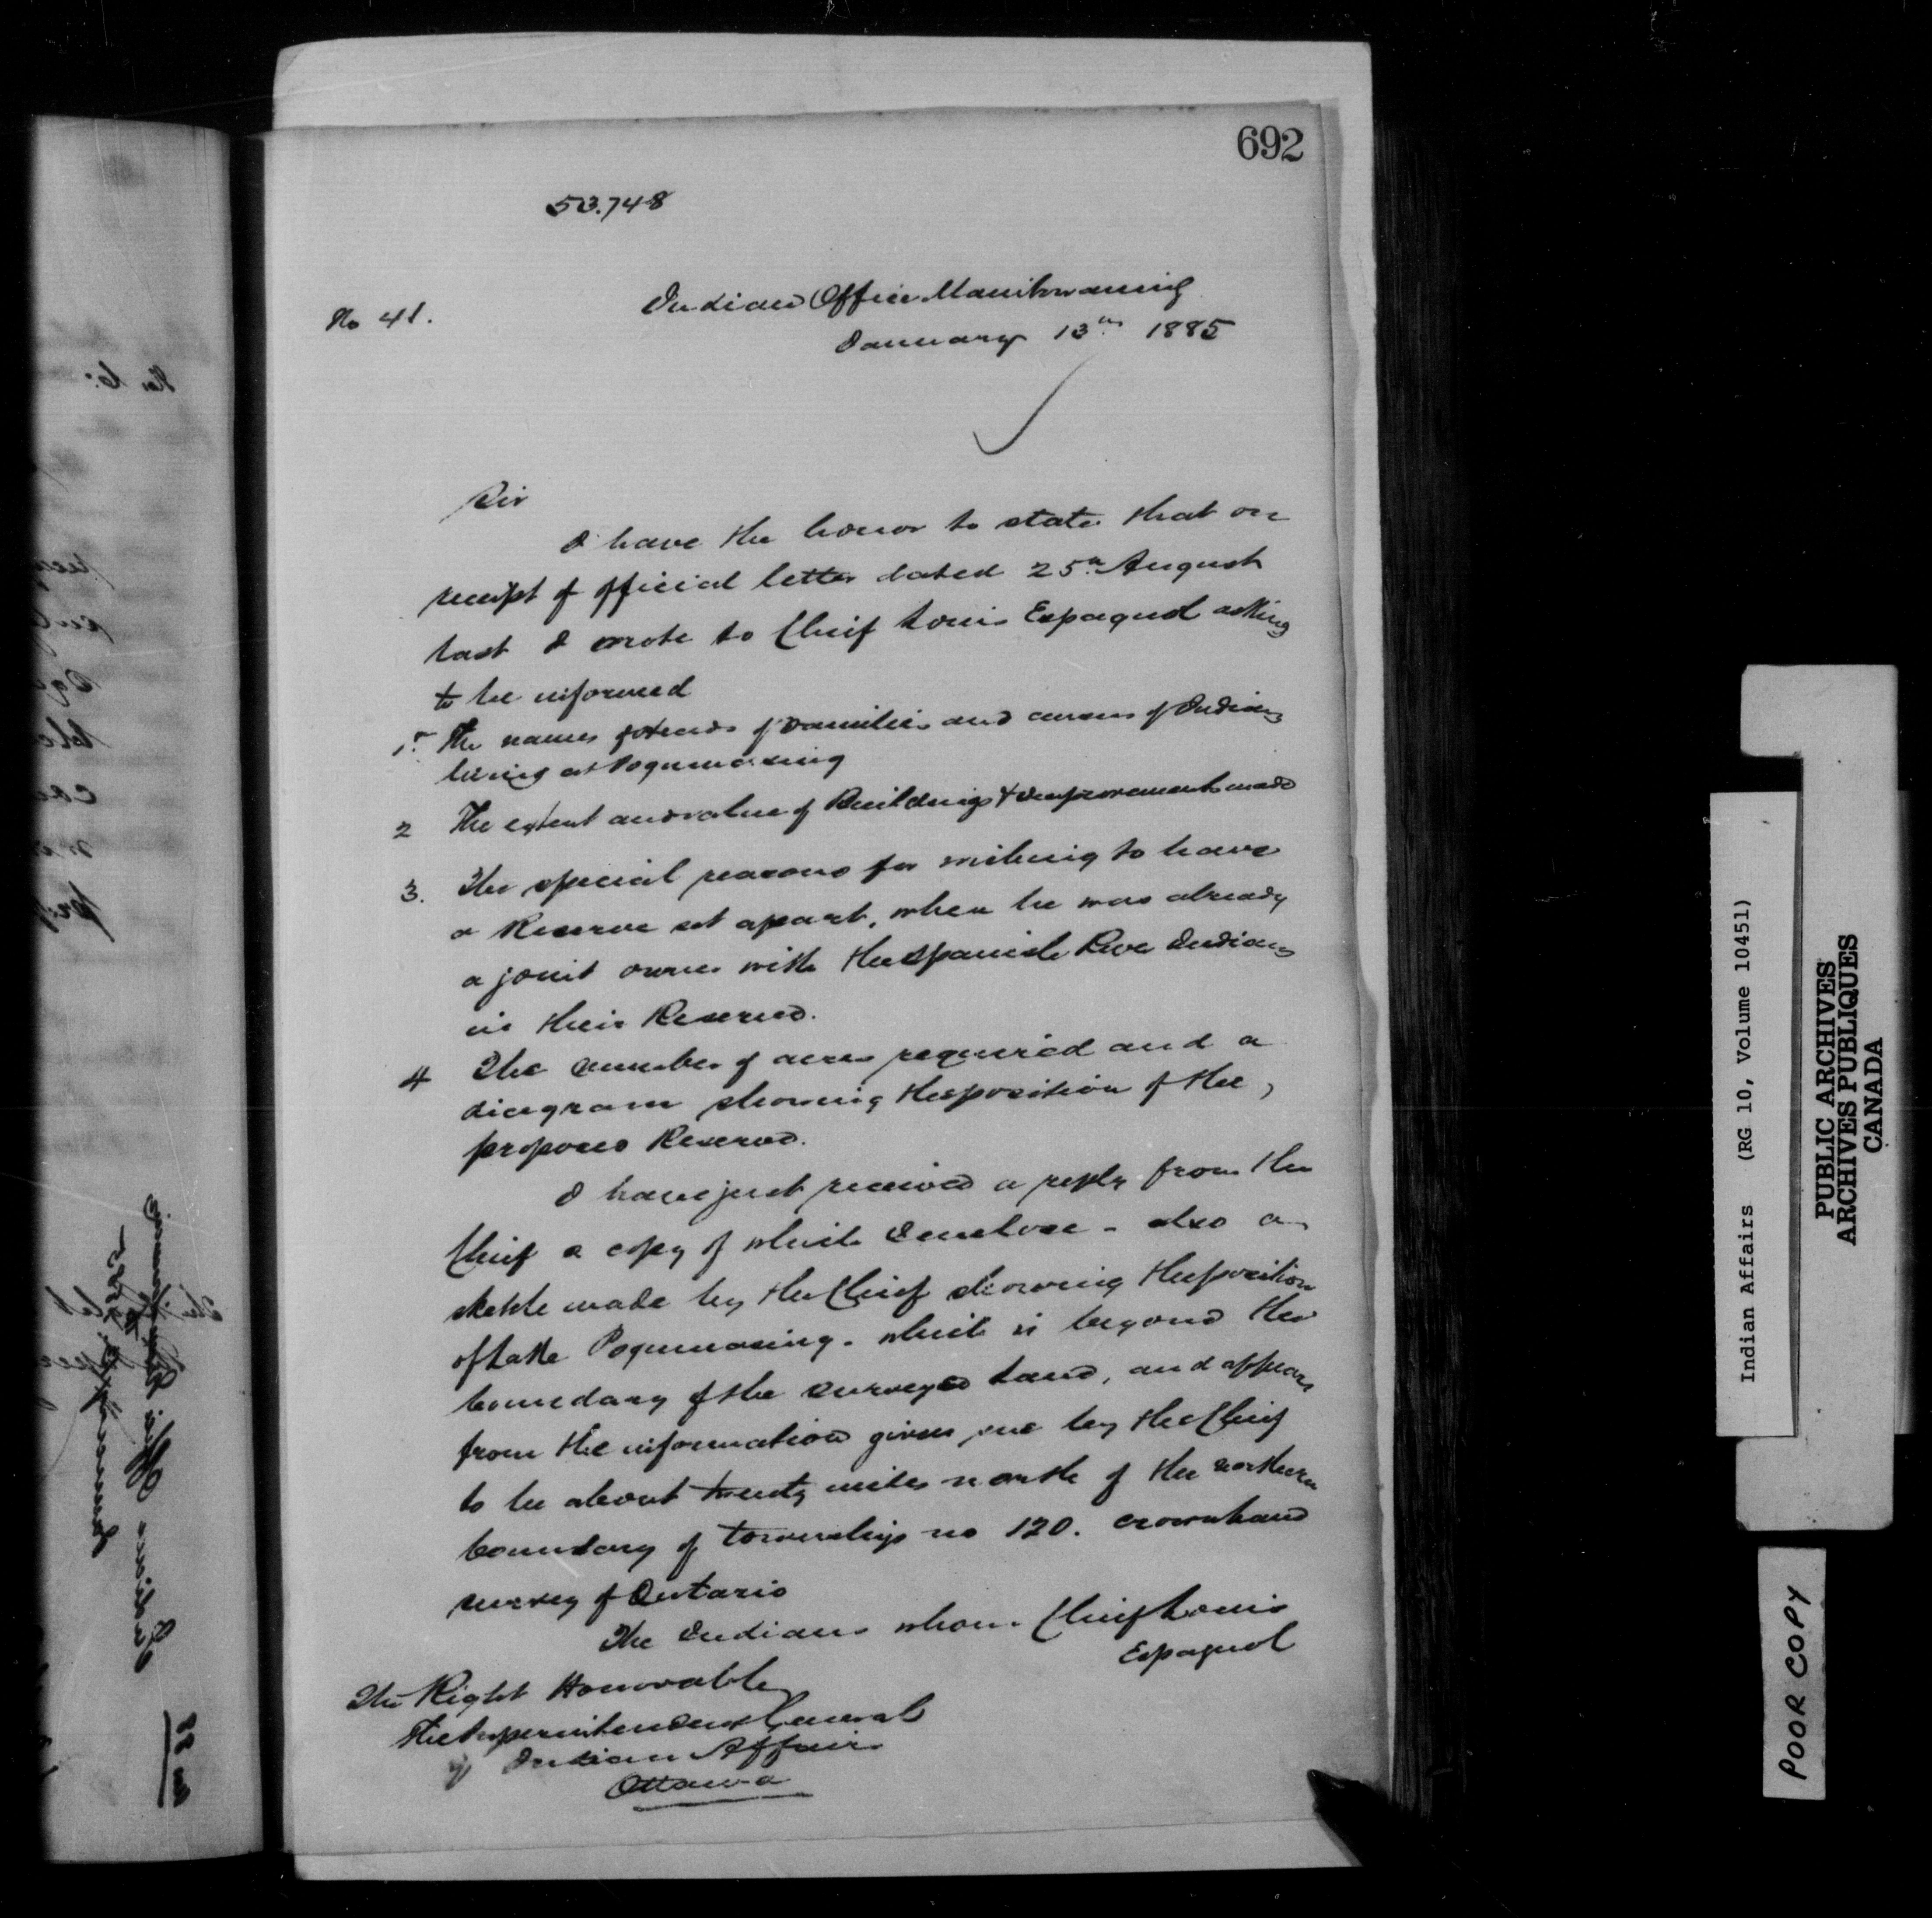 692
53.748
No 41.
Indian Office Manitowaning
January 13th 1885
Sir
I have the honor to state that on
receipt of official letter dated 25th August
last I wrote to Chief Louis Espagnol asking
to be informed
1st The names of heads of Families and census of Indians
living at Pogumasing
2 The extent and value of Buildings & improvements made
3. The special reasons for wishing to have
a Reserve set apart, when he was already
a joint owner with the Spanish River Indians
in their Reserve.
4 The number of acres required and a
diagram showing the position of the
proposed Reserve.
I have just received a reply from the
Chief a copy of which I enclose - also a
sketch made by the Chief showing the position
of Lake Pogumasing - which is beyond the
boundary of the surveyed land, and appears
from the information given me by the Chief
to be about twenty miles north of the northern
boundary of township no 120. crown land
survey of Ontario
The Indians whom Chief Louis
Espagnol
The Right Honorable
The Superintendent General
of Indian Affairs
Ottawa
Indian Affairs (RG 10, Volume 10451)
PUBLIC ARCHIVES
ARCHIVES PUBLIQUES
CANADA
POOR COPY